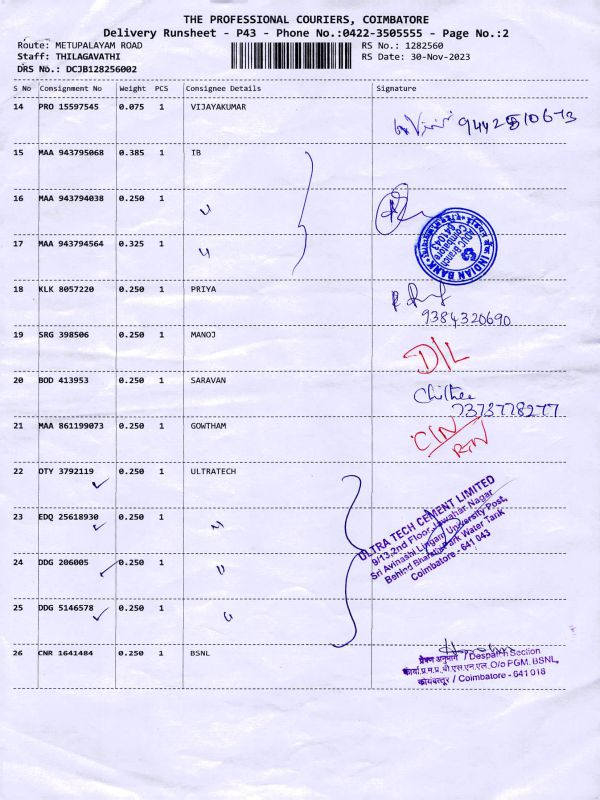 THE PROFESSIONAL COURIERS, COIMBATORE
Delivery Runsheet - P43 - Phone No.:0422-3505555 - Page No.:2
Route: METUPALAYAM ROAD
RS No.: 1282560
Staff: THILAGAVATHI
RS Date: 30-Nov-2023
DRS No.: DCJB128256002
S No Consignment No Weight PCS Consignee Details Signature
14 PRO 15597545 0.075 1 VIJAYAKUMAR
15 MAA 943795068 0.385 1 IB
16 MAA 943794038 0.250 1
17 MAA 943794564 0.325 1
INDIAN BANK
ADUC Branch
Coimbatore
641043
18 KLK 8057220 0.250 1 PRIYA
9384320690
19 SRG 398506 0.250 1 MANOJ D/L
20 BOD 413953 0.250 1 SARAVAN Chithee
7373778277
21 MAA 861199073 0.250 1 GOWTHAM
22 OTY 3792119 0.250 1 ULTRATECH
23 EDQ 25618930 0.250 1
24 DDG 206005 0.250 1
25 DDG 5146578 0.250 1
ULTRA TECH CEMENT LIMITED
9/13,2nd Floor, Jawahar Nagar
Sri Avinashi Lingam University Post,
Behind Bharathi Park Water Tank
Coimbatore - 641 043
26 CNR 1641484 0.250 1 BSNL
प्रेषण अनुभाग / Despatch Section
O/o PGM. BSNL,
कोयंबत्तूर / Coimbatore - 641 018